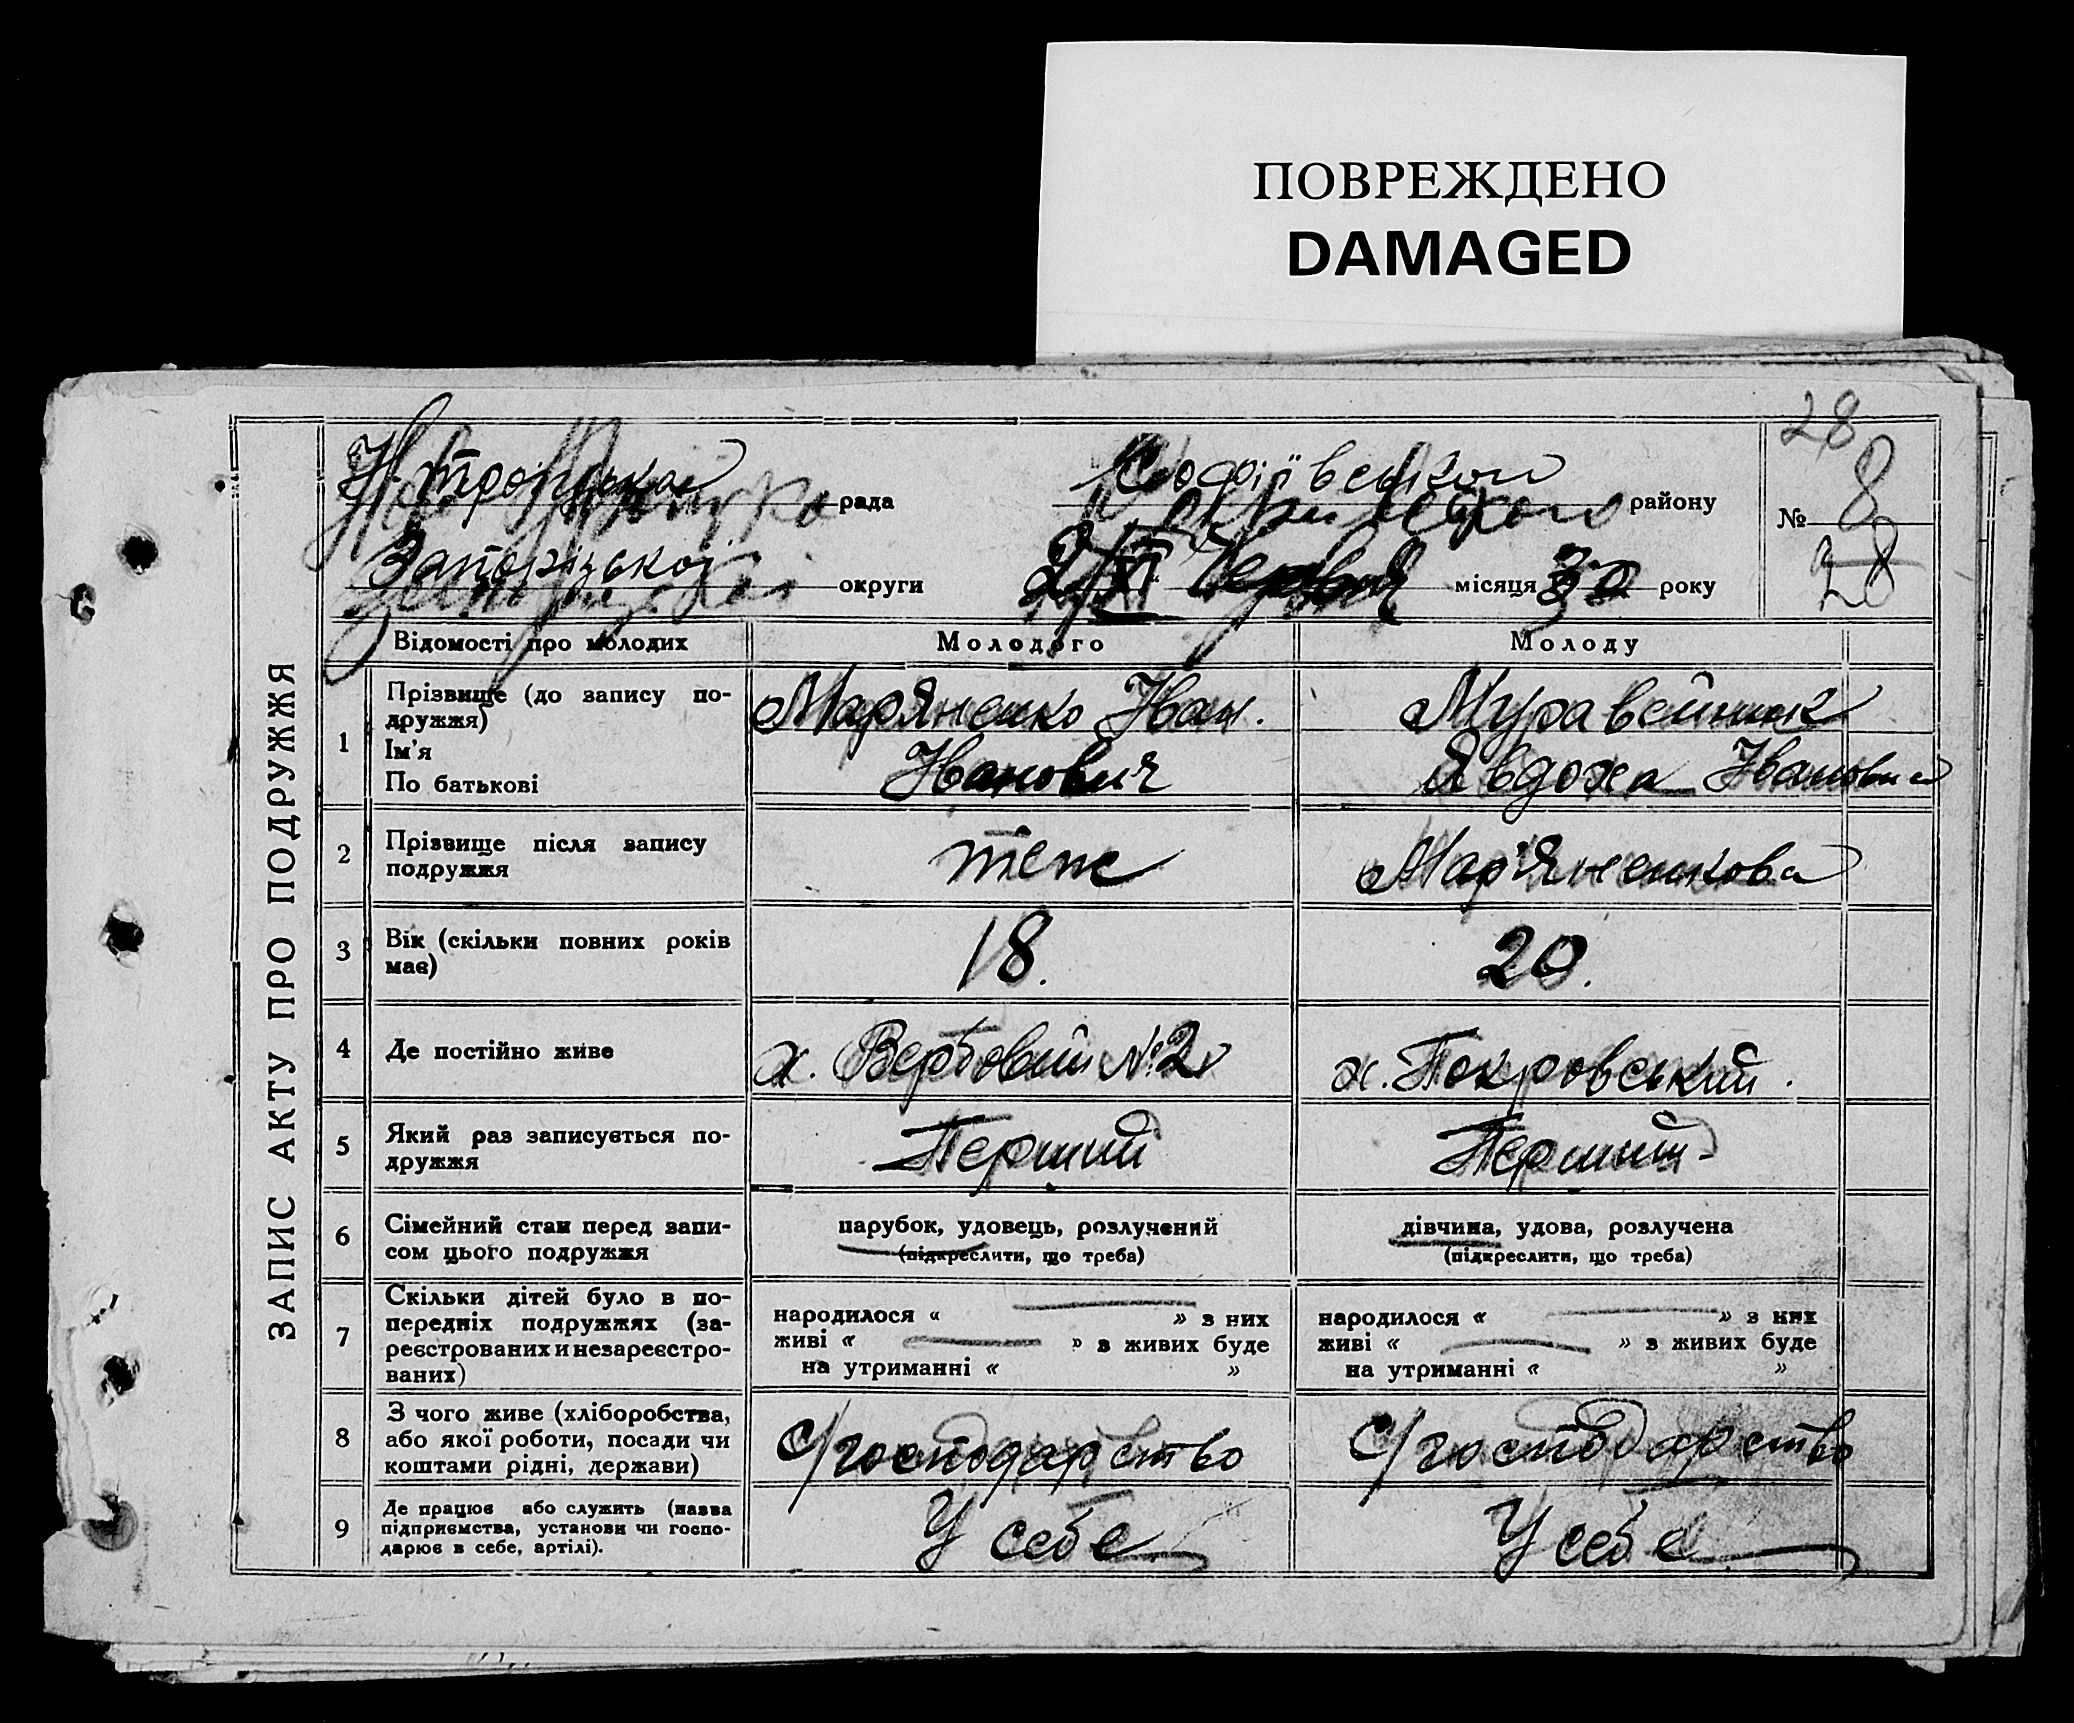 ПОВРЕЖДЕНО
DAMAGED
28
ЗАПИС АКТУ ПРО ПОДРУЖЖЯ
Н. Троїцька рада Софіївської району № 8
Запорізької округи Червня місяця 30 року 28
Відомості про молодих Молодого Молоду
1 Прізвище (до запису по-
дружжя)
Ім'я
По батькові
Мар'яненко Іван.
Іванович
Муравейник
Явдоха Івановна
2 Прізвище після запису
подружжя
теж
Мар'яненкова
3 Вік (скільки повних років
має)
18.
20.
4 Де постійно живе
х. Вербовий №2
х. Покровський.
5 Який раз записується по-
дружжя
Перший
Перший
6 Сімейний стан перед запи-
сом цього подружжя
парубок, удовець, розлучений
(підкреслити, що треба)
дівчина, удова, розлучена
(підкреслити, що треба)
7 Скільки дітей було в по-
передніх подружжях (за-
реєстрованих и незареєстро-
ваних)
народилося « — » з них
живі « — » з живих буде
на утриманні « »
народилося « — » з них
живі « — » з живих буде
на утриманні « »
8 З чого живе (хліборобства,
або якої роботи, посади чи
коштами рідні, держави)
С/господарство
С/господарство
9 Де працює або служить (назва
підприємства, установи чи госпо-
дарює в себе, артілі).
У себе
У себе